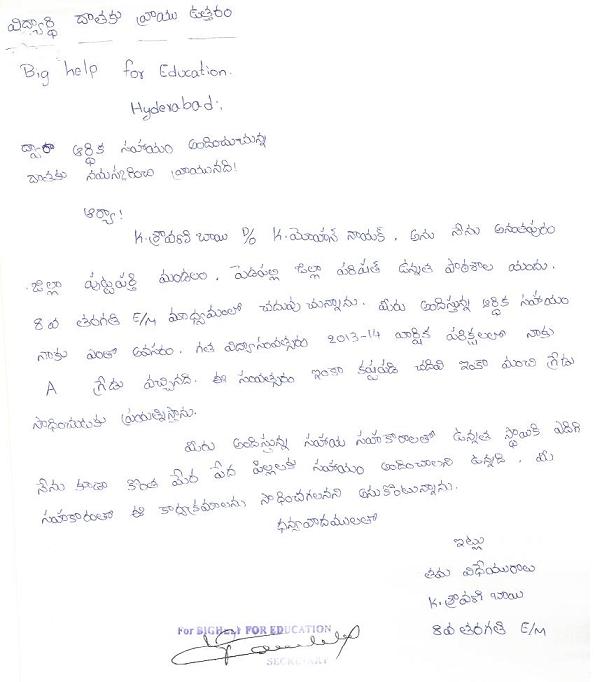 విద్యార్థి దాతకు వ్రాయు ఉత్తరం
Big help for Education.
Hyderabad;
ద్వారా ఆర్థిక సహాయం అందించుచున్న
దాతకు నమస్కరించి వ్రాయునది!
ఆర్యా!
K. శ్రావణి బాయి D/o K. మోహన్ నాయక్, అను నేను అనంతపురం
జిల్లా పుట్టపర్తి మండలం, పెడపల్లి జిల్లా పరిషత్ ఉన్నత పాఠశాల యందు.
8వ తరగతి E/M మాధ్యమంలో చదువుచున్నాను. మీరు అందిస్తున్న ఆర్థిక సహాయం
నాకు ఎంతో అవసరం. గత విద్యాసంవత్సరం 2013-14 వార్షిక పరీక్షలలో నాకు
A గ్రేడు వచ్చినది. ఈ సంవత్సరం ఇంకా కష్టపడి చదివి ఇంకా మంచి గ్రేడు
సాధించుటకు ప్రయత్నిస్తాను.
మీరు అందిస్తున్న సహాయ సహకారాలతో ఉన్నత స్థాయికి ఎదిగి
నేను కూడా కొంత మేర పేద పిల్లలకు సహాయం అందించాలని ఉన్నది. మీ
సహకారంతో ఈ కార్యక్రమాలను సాధించగలనని అనుకొంటున్నాను.
ధన్యవాదములతో
ఇట్లు
తమ విధేయురాలు
K. శ్రావణి బాయి
8వ తరగతి E/M
For BIGHELP FOR EDUCATION
SECRETARY